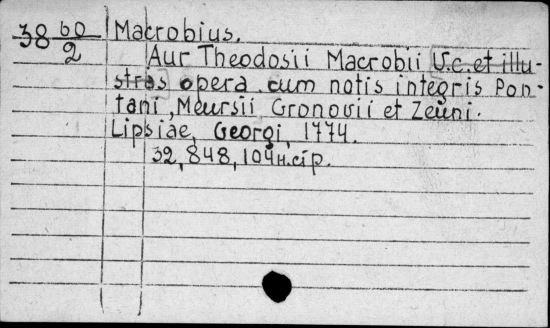 38 60/2
Macrobius.
Aur Theodosii Macrobii V.c. et illu-
stras opera cum notis integris Pon-
tani, Meursii Gronovii et Zeuni.
Lipsiae, Georgi, 1774.
32, 848, 104 н. cip.